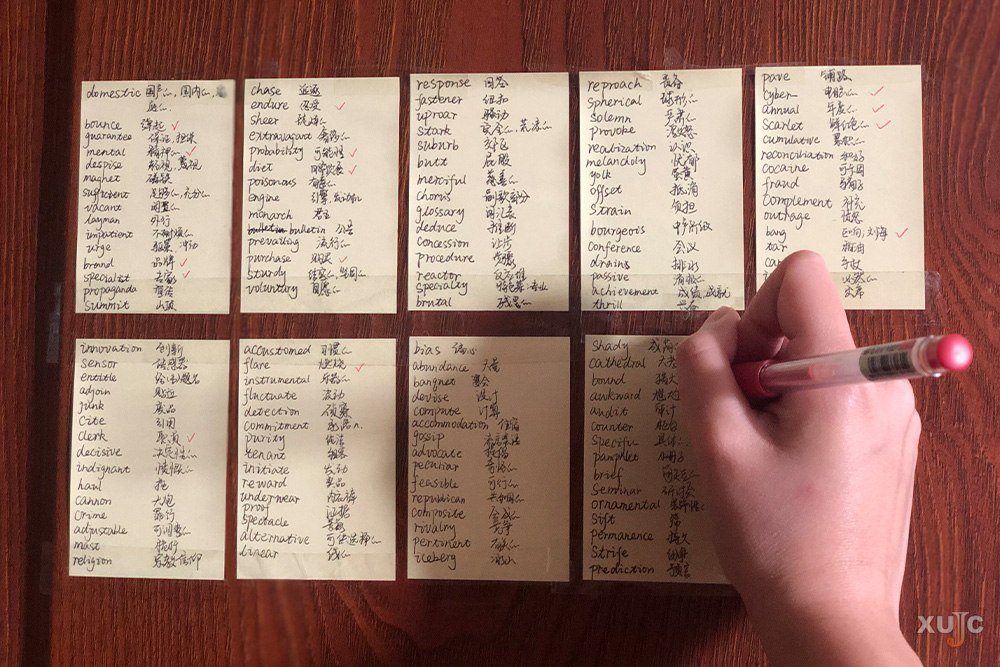 domestic 国产的, 国内的,
bounce 弹起 ✓
guarantee 保证, 担保
mental 精神的 ✓
despise 轻视, 蔑视
magnet 磁铁
sufficient 足够的, 充分的
vacant 闲置的
layman 外行
impatient 不耐烦的
urge 驱策, 冲动
brand 品牌 ✓
specialist 专家 ✓
propaganda 宣传
summit 山顶
chase 追逐
endure 忍受 ✓
sheer
extravagant 奢侈的
probability 可能性 ✓
diet 日常饮食 ✓
poisonous 有毒的
engine 引擎, 发动机
monarch 君主
bulletin 公告
prevailing 流行的
purchase 购买 ✓
sturdy 结实的, 坚固的
voluntary 自愿的
response 回答
fastener 纽扣
uproar 骚动
stark 完全的, 荒凉的
suburb 郊区
butt 屁股
merciful 慈善的
chorus 副歌部分
glossary 词汇表
deduce 推断
concession 让步
procedure 步骤
reactor 反应堆
specialty 特色菜, 专业
brutal 残忍的
reproach 责备
spherical 球形的
solemn 严肃的
provoke 激怒
realization 认识
melancholy 忧郁
yolk 蛋黄
offset 抵消
strain 负担
bourgeois 中产阶级
conference 会议
drains 排水
passive 消极的
achievement 成绩, 成就
thrill
pave 铺路
cyber 电脑的 ✓
annual 年度的 ✓
scarlet 鲜红色的 ✓
cumulative 累积的
reconciliation 和好
cocaine 可卡因
fraud 骗子
complement 补充
outrage 愤怒
bang 巨响, 刘海 ✓
tar 焦油
手杖
仪器的
出席
innovation 创新
sensor 传感器
entitle 给(书)题名
adjoin 贴近
junk 废品
cite 引用
clerk 职员 ✓
decisive 决定性的
indignant 愤慨的
haul 拖
cannon 大炮
crime 罪行
adjustable 可调整的
mast 桅杆
religion 宗教信仰
accustomed 习惯的
flare 燃烧 ✓
instrumental 乐器的
fluctuate 波动
detection 侦察
commitment 承诺
purity 纯洁
tenant 租客
initiate 发动
reward 奖品
underwear 内衣裤
proof 证据
spectacle 景观
alternative 可供选择的
linear 线的
bias 偏心
abundance 大量
banquet 宴会
devise 设计
compute 计算
accommodation 住宿
gossip 流言蜚语
advocate 提倡
peculiar 奇怪的
feasible 可行的
republican 共和国的
composite 合成的
rivalry 竞争
pertinent
iceberg 冰山
shady
cathedral 大教
bound
awkward 尴尬
audit 审计
counter 柜台
specific 具体
pamphlet 小册子
brief
seminar 研讨会
ornamental
sift 筛
permanence 持久
strife
prediction 预言
XUJC